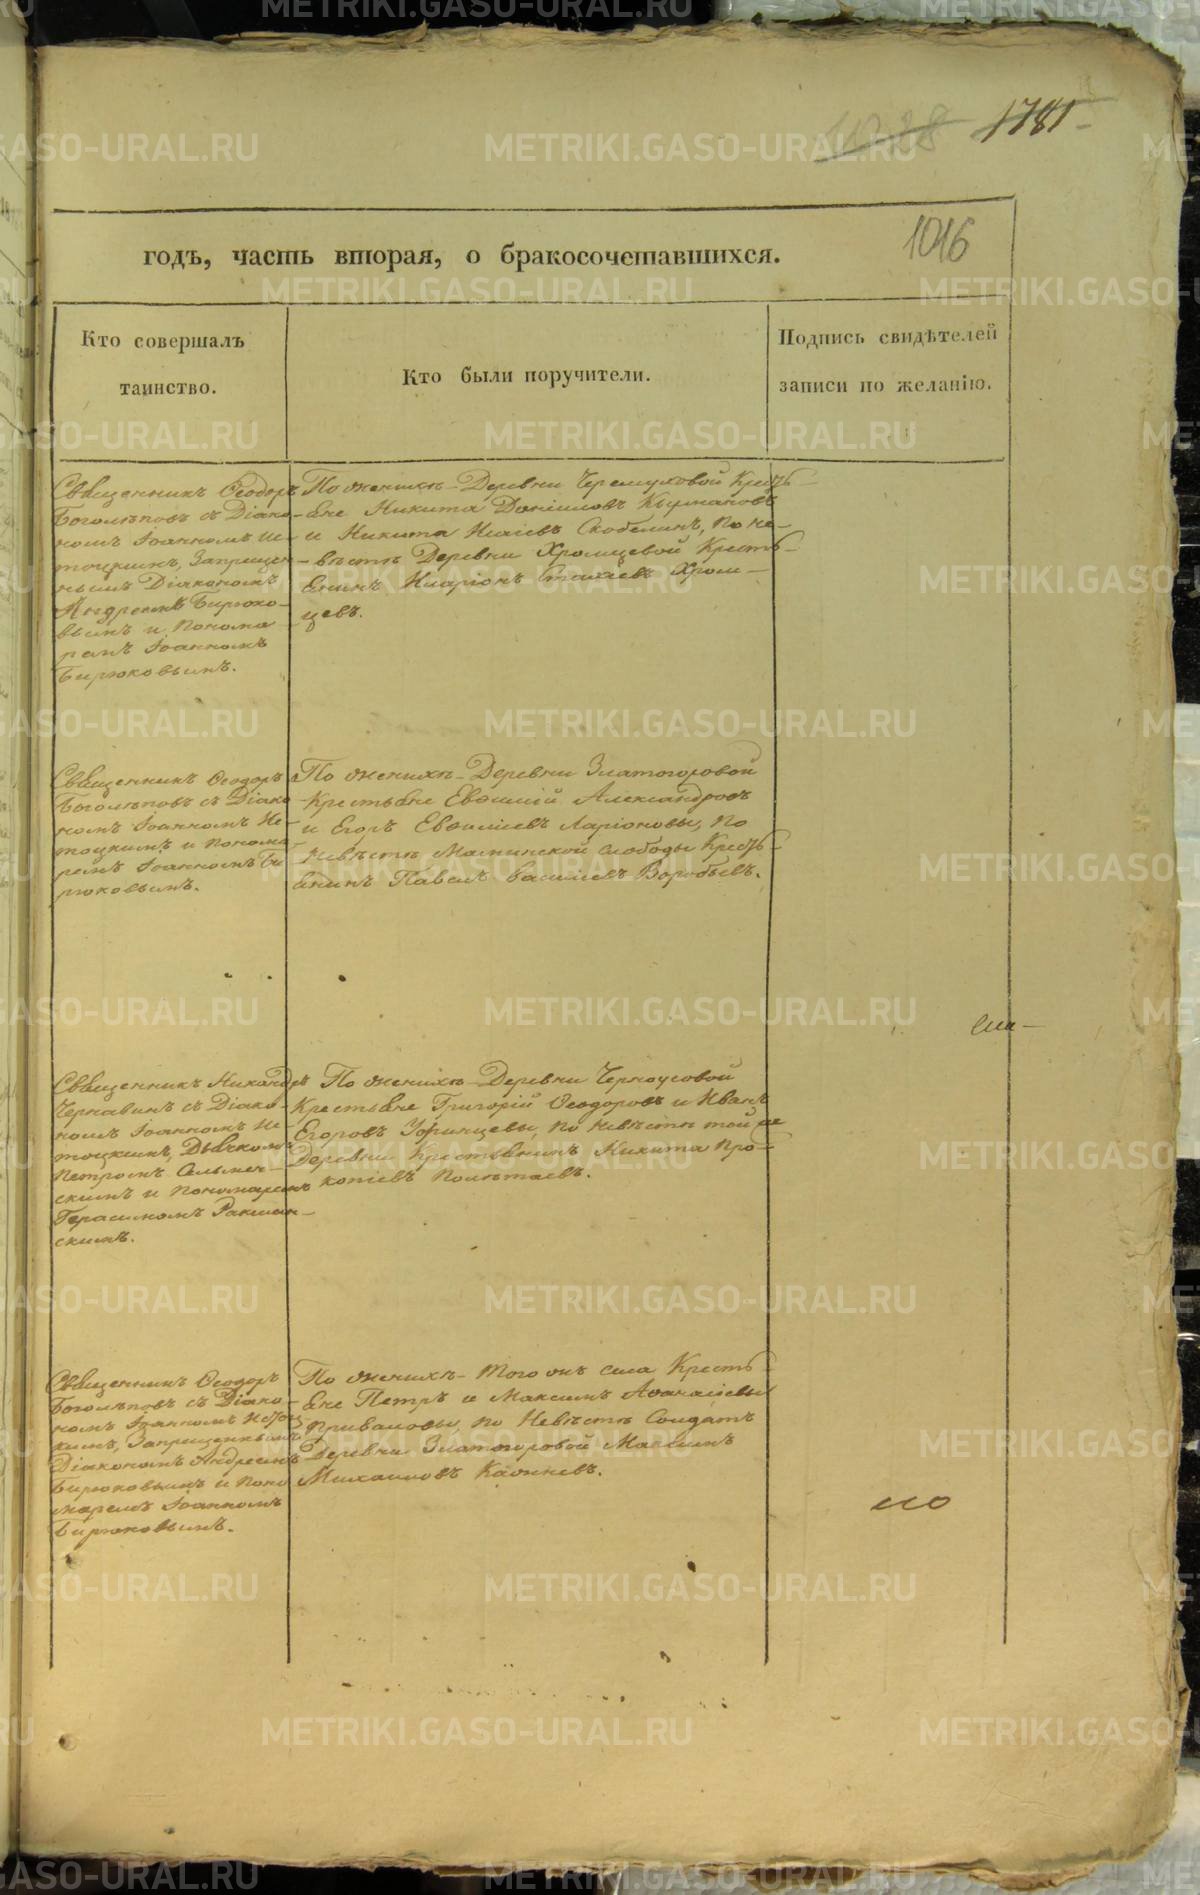 1028 1781
1016
годъ, часть вторая, о бракосочетавшихся.
Кто совершалъ
таинство.
Кто были поручители.
Подпись свидѣтелей
записи по желанію.
Священникъ Ѳеодоръ
Боголѣповъ съ Діако-
номъ Іоанномъ Не-
тоцкимъ, Запрещен-
нымъ Діакономъ
Андреемъ Бирюко-
вымъ и Понома-
ремъ Іоанномъ
Бирюковымъ.
По женихѣ - Деревни Черемуховой Кресть-
яне Никита Даніиловъ
и Никита Исаіевъ Скобелинъ, по не-
вѣстѣ Деревни Хромцевой Кресть-
янинъ Иларіонъ Стахіевъ Хром-
цевъ.
Священникъ Ѳеодоръ
Боголѣповъ съ Діако-
номъ Іоанномъ Не-
тоцкимъ и Понома-
ремъ Іоанномъ Би-
рюковымъ.
По женихѣ - Деревни Златогоровой
Крестьяне Евѳимій Александровъ
и Егоръ Евѳиміевъ Ларіоновы, по
невѣстѣ Маминской слободы Кресть-
янинъ Павелъ Василіевъ Воробьевъ.
Священникъ Никандръ
Чернавинъ съ Діако-
номъ Іоанномъ Не-
тоцкимъ, Дьячкомъ
Петромъ
скимъ и Пономаремъ
Герасимомъ
скимъ.
По женихѣ - Деревни Черноусовой
Крестьяне Григорій Ѳеодоровъ и Иванъ
Егоровъ Уфинцевы, по невѣстѣ той же
Деревни Крестьянинъ Никита Про-
копіевъ Полѣтаевъ.
Священникъ Ѳеодоръ
Боголѣповъ съ Діако-
номъ Іоанномъ Нетоц-
кимъ, Запрещеннымъ
Діакономъ Андреемъ
Бирюковымъ и Поно-
маремъ Іоанномъ
Бирюковымъ.
По женихѣ - того жъ села Кресть-
яне Петръ и Максимъ Аѳанасіевы
Приваловы, по Невѣстѣ Солдатъ
Деревни Златогоровой Максимъ
Михаиловъ